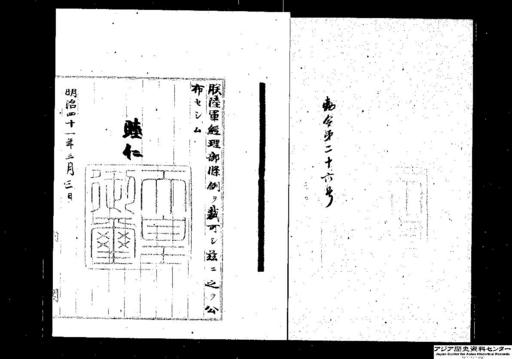 勅令第二十六号
朕陸軍経理部条例ヲ裁可シ茲ニ之ヲ公
布セシム
睦仁
天皇御璽
明治四十一年三月三日
アジア歴史資料センター
Japan Center for Asian Historical Records